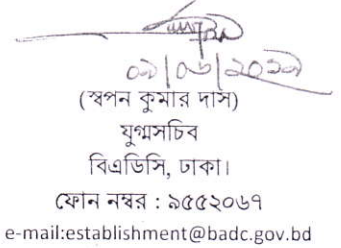 (স্বপন কুমার দাস)
যুগ্মসচিব
বিএডিসি, ঢাকা।
ফোন নম্বর : ৯৫৫২০৬৭
e-mail:establishment@badc.gov.bd